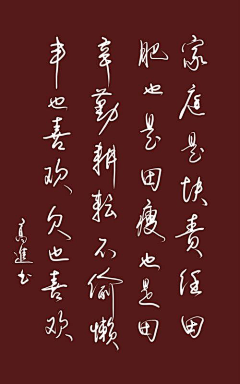 家庭是块责任田
肥也是田瘦也是田
辛勤耕耘不偷懒
丰也喜欢欠也喜欢
高進书